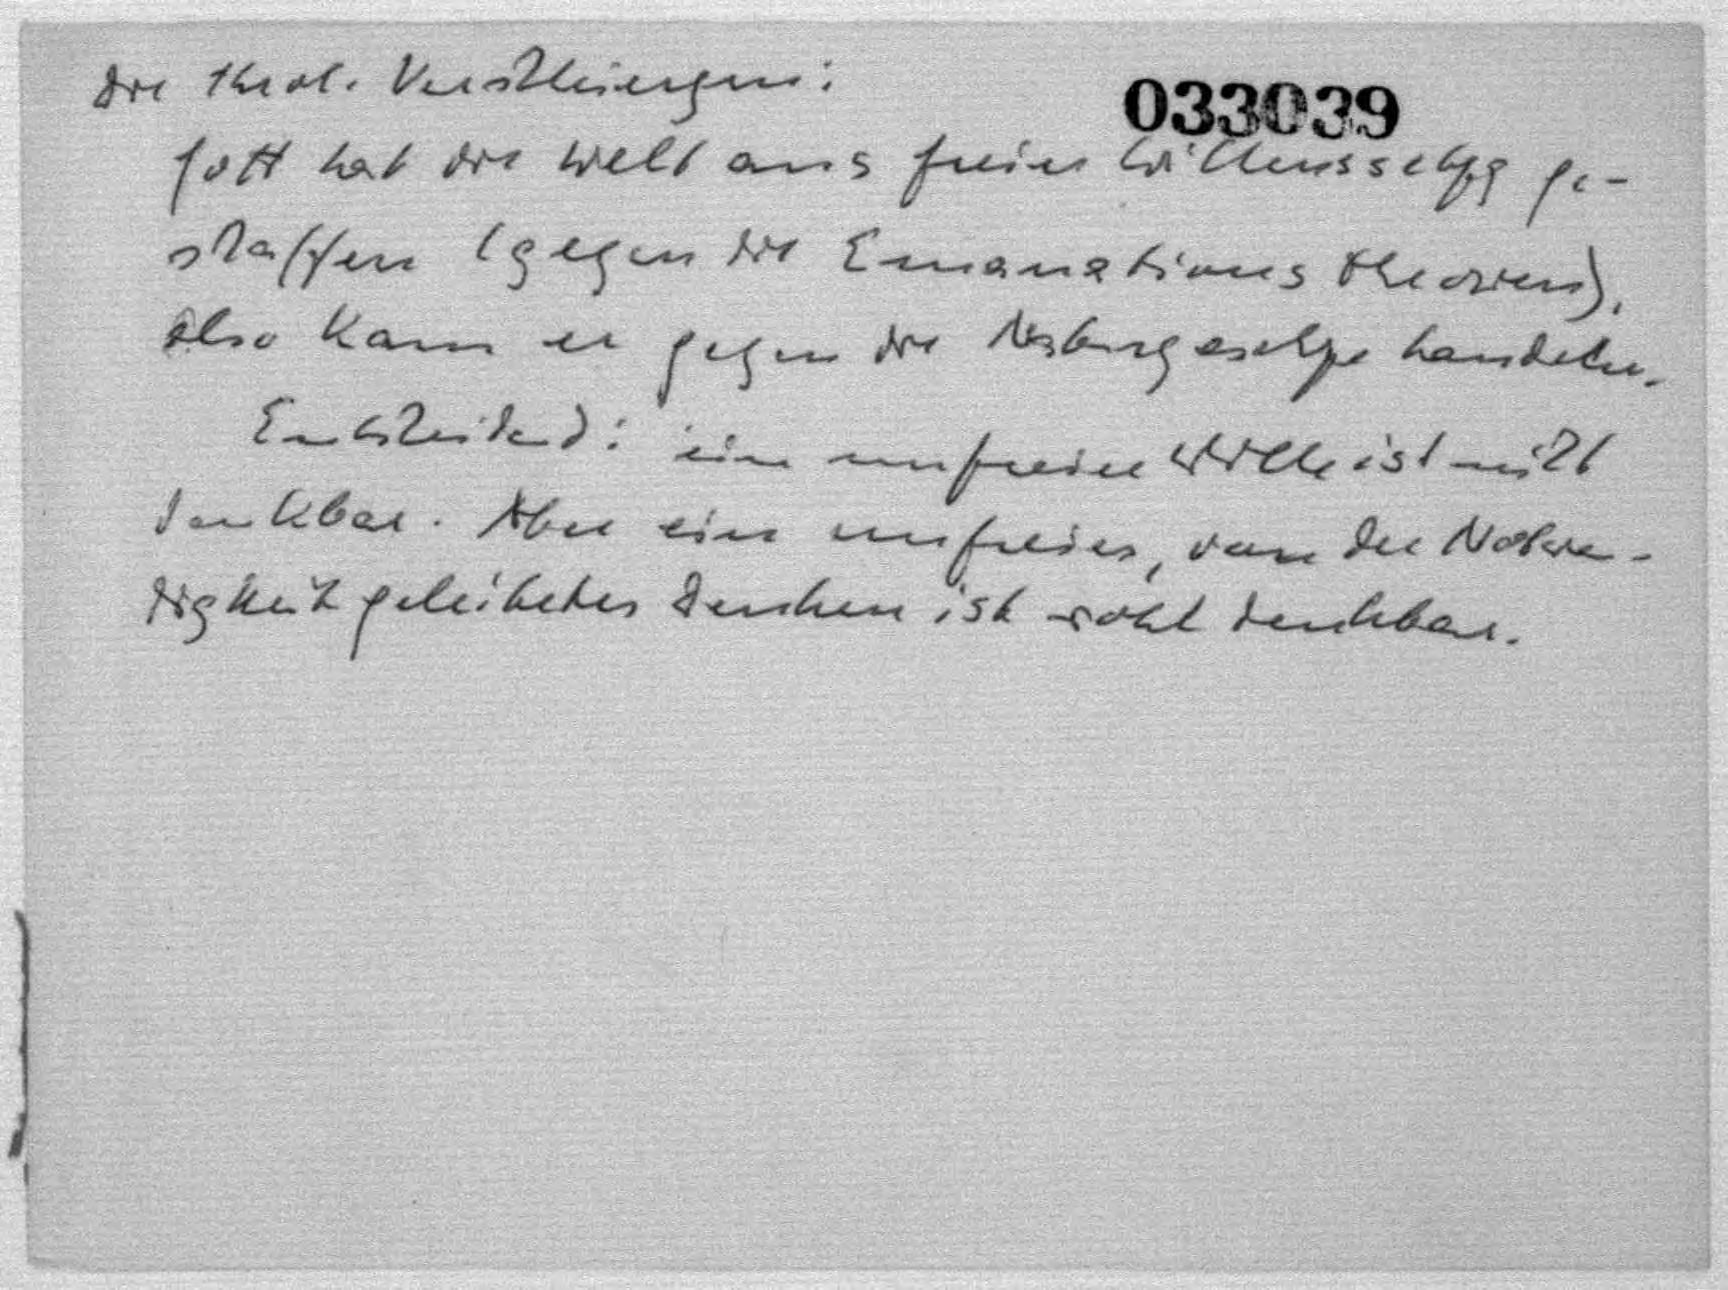 Die theol. Verschleierungen:
033039
Gott hat die Welt aus freier Willenssetzg ge-
schaffen (gegen die Emanationstheorien),
also kann er gegen die Naturgesetze handeln.
Entscheidend: ein unfreier Wille ist nicht
denkbar. Aber ein unfreies, von der Notwen-
digkeit geleitetes Denken ist wohl denkbar.